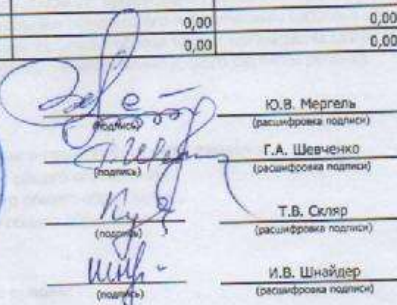 0,00 0,00
0,00 0,00
(подпись) Ю.В. Мергель
(расшифровка подписи)
(подпись) Г.А. Шевченко
(расшифровка подписи)
(подпись) Т.В. Скляр
(расшифровка подписи)
(подпись) И.В. Шнайдер
(расшифровка подписи)